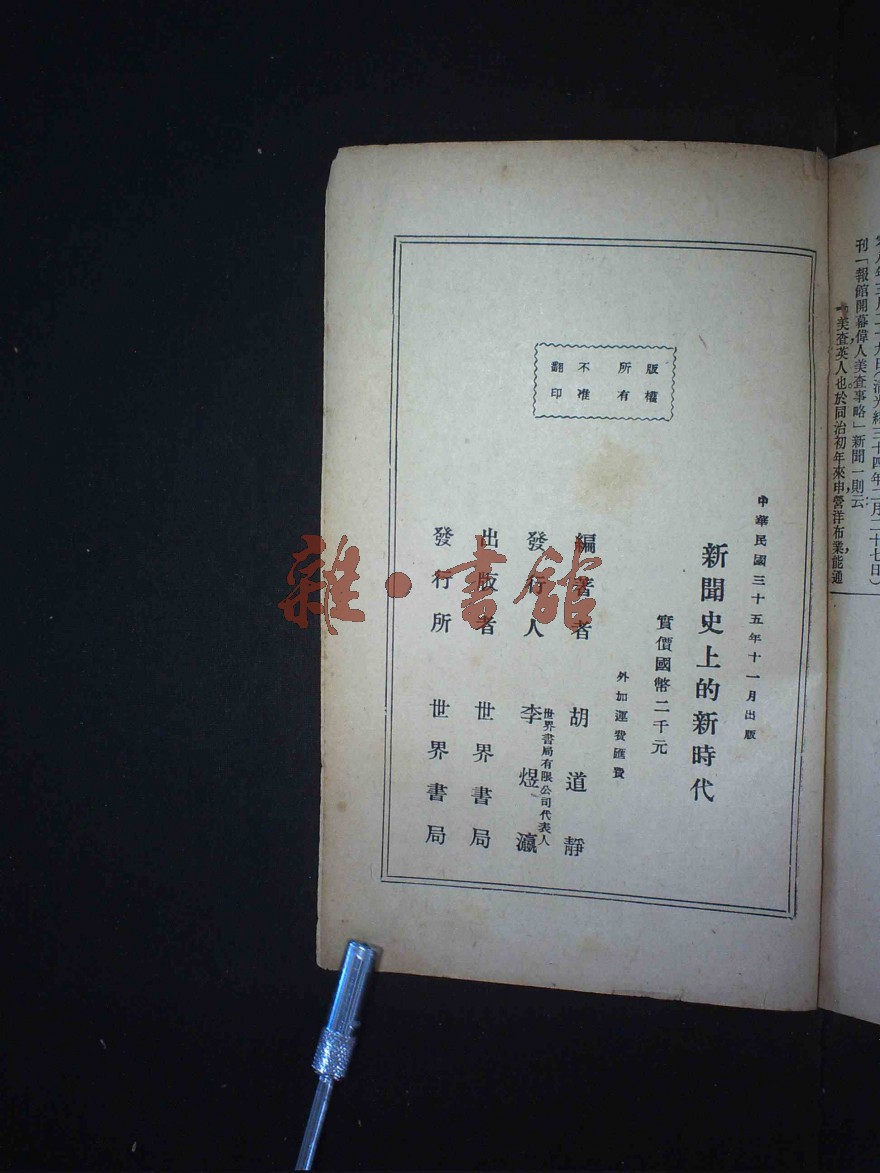 刊「報館開幕偉人美查事略」新聞一則云
美查英人也於同治初年來申營洋布業能通
版權
所有
不准
翻印
中華民國三十五年十一月出版
新聞史上的新時代
實價國幣二千元
外加運費匯費
編著者 胡道靜
世界書局有限公司代表人
發行人 李煜瀛
出版者 世界書局
發行所 世界書局
雜·書館